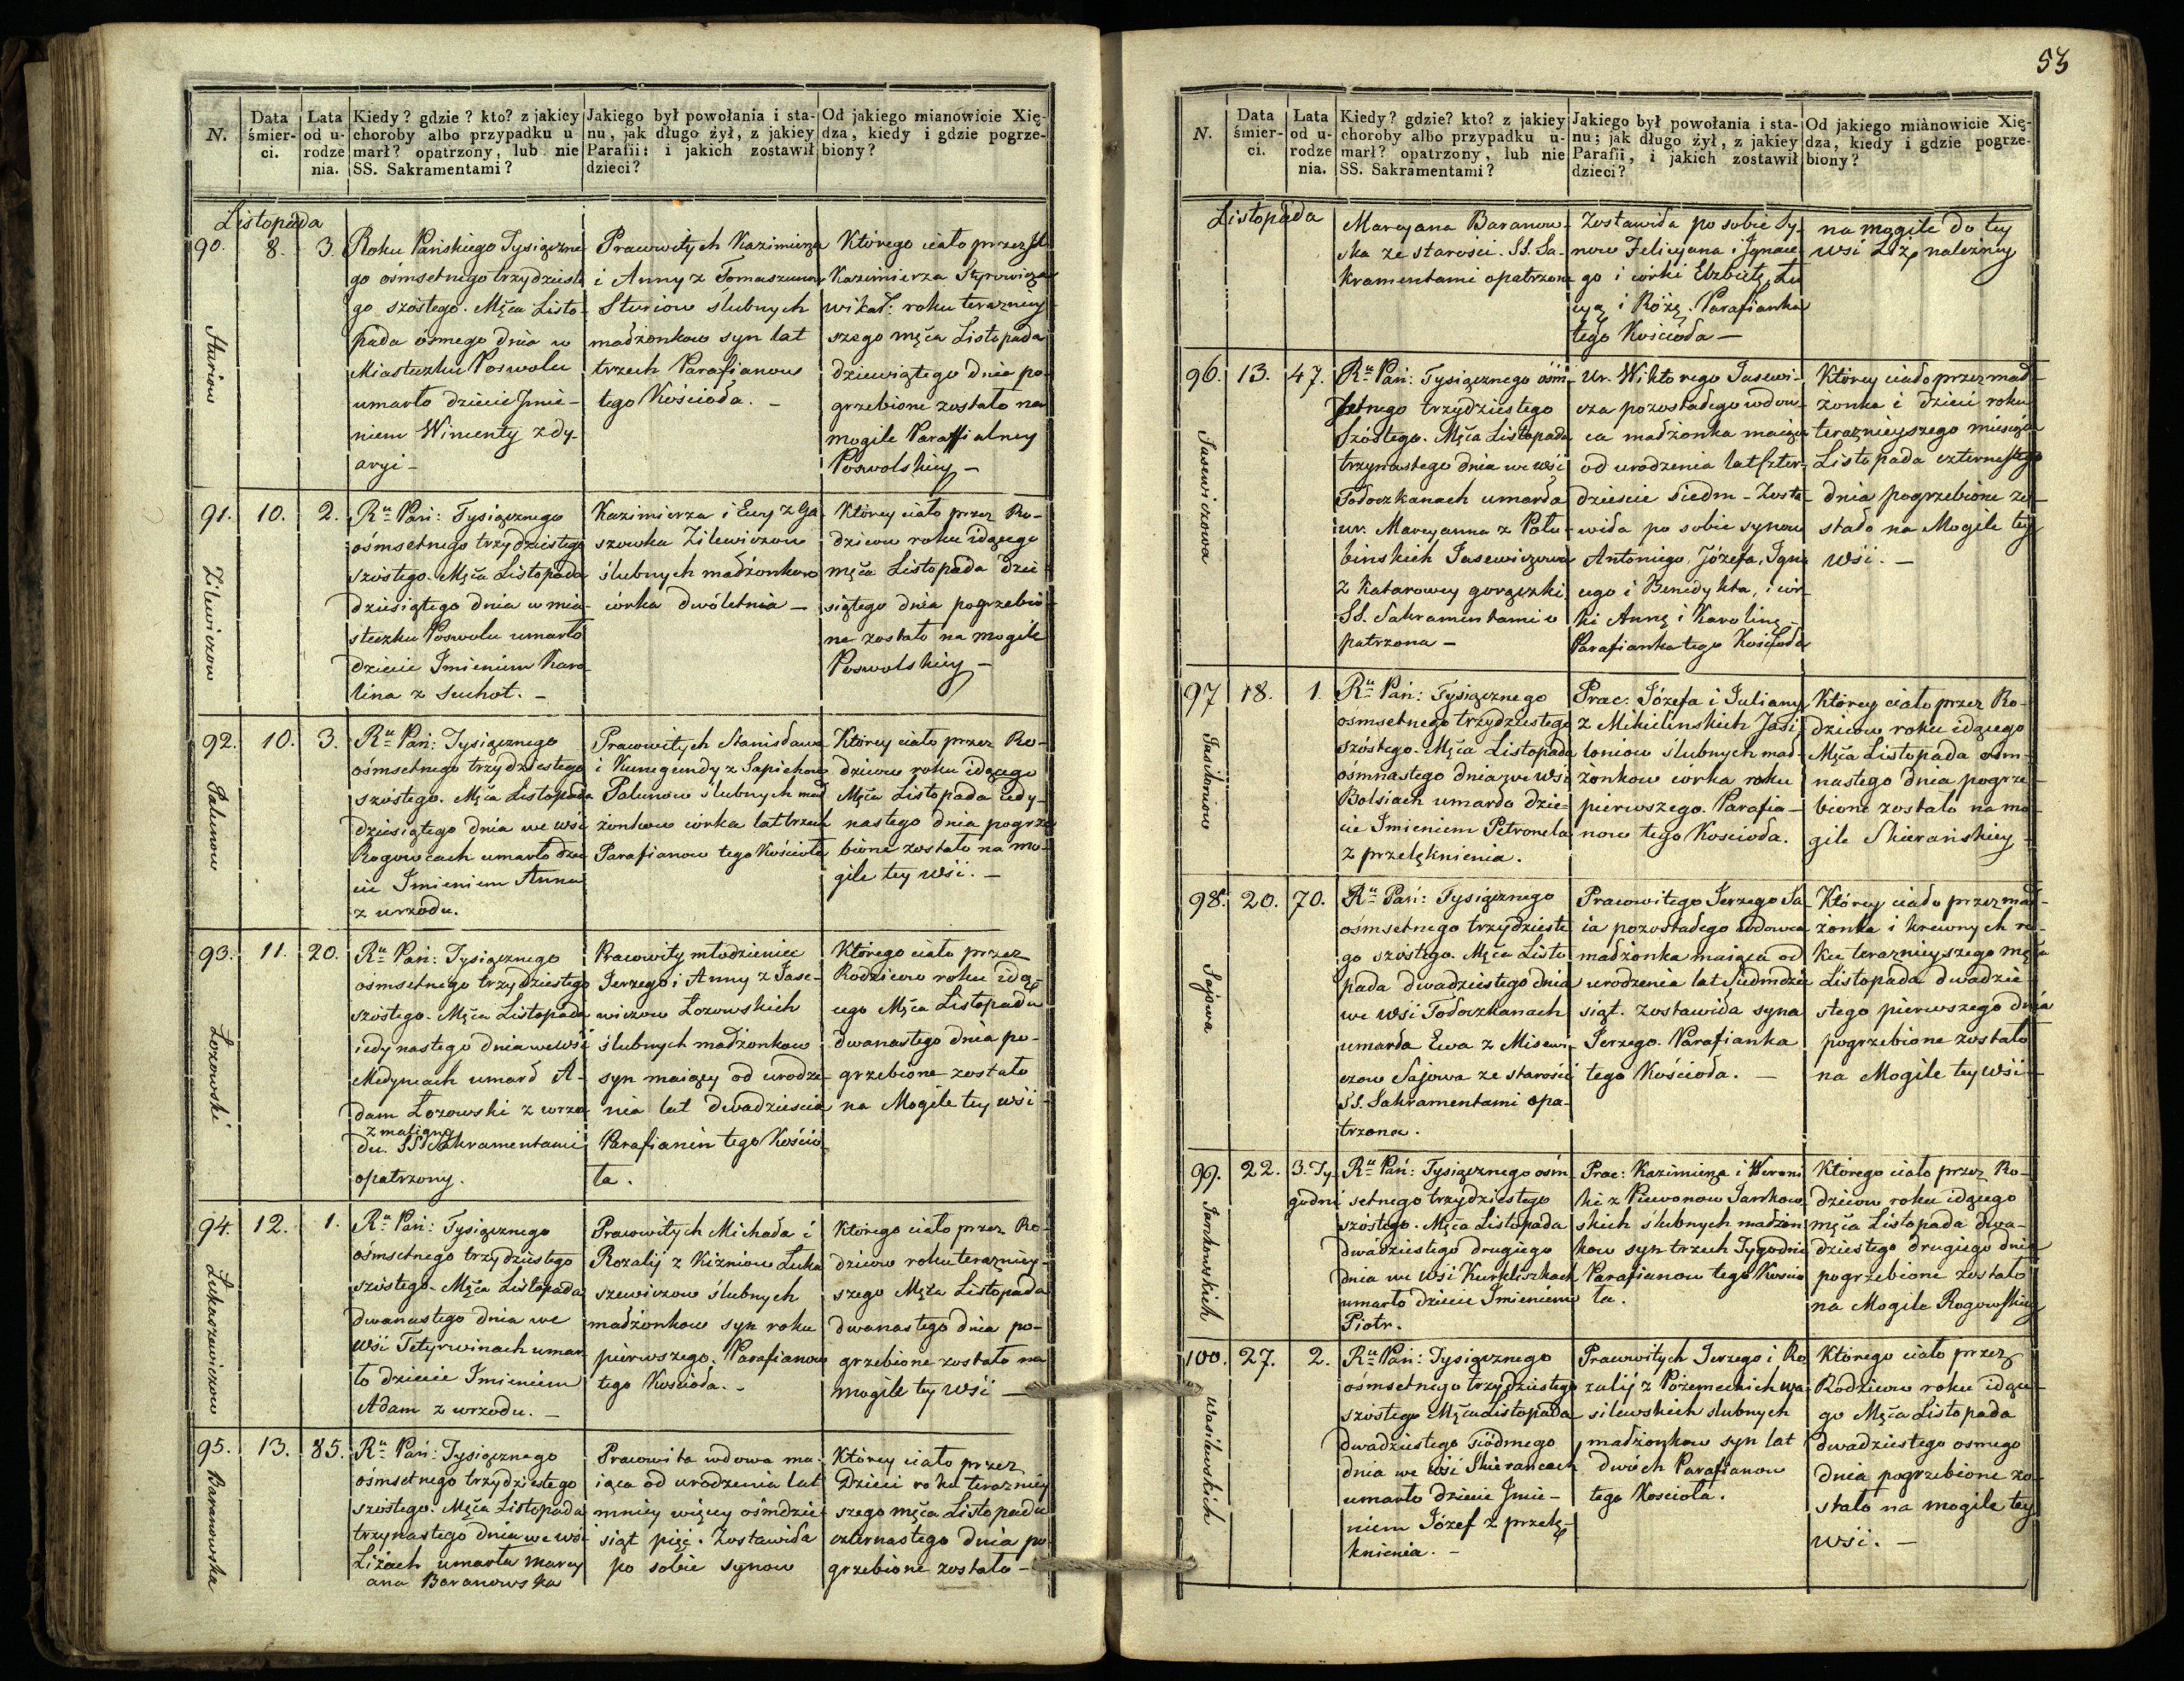 N.
Data śmier-ci.
Lata od u-rodze nia.
Kiedy? gdzie? kto? z jakiey
choroby albo przypadku u
marł? opatrzony, lub nie
SS. Sakramentami?
Jakiego był powołania i sta-
nu, jak długo żył, z jakiey
Parafii: i jakich zostawił
dzieci?
Od jakiego mianowicie Xię-
dza, kiedy i gdzie pogrze-
biony?
Listopada
90.
8.
3.
Roku Pańskiego Tysiączne
go ośmsetnego trzydzieste
go szóstego. Mśca Listo-
pada ósmego dnia w
Miasteczku Poswolu
umarło dziecie Jmie-
niem Wincenty z dy-
aryi -
Prawowitych Kazimierza
i Anny z Tomaszunow
Sturiow ślubnych
małżonkow syn lat
trzech Parafianow
tego Kościoła. -
Którego ciało przez
Kazimierza
wikar: roku teraźniey-
szego mśca Listopada
dziewiątego dnia po-
grzebione zostało na
mogile Paraffialney
Poswolskiey -
Sturiow
91.
10.
2.
Ru Pań: Tysiącznego
ośmsetnego trzydziestego
szóstego. Mśca Listopada
dziesiątego dnia w mia-
steczku Poswolu umarło
dziecie Imieniem Karo-
lina z suchot. -
Kazimierza i Ewy z Ga
szowka Zilewiczow
ślubnych małżonkow
córka dwóletnia -
Którey ciało przez Ro-
dzicow roku idącego
mśca Listopada dzie
siątego dnia pogrzebio-
ne zostało na mogile
Poswolskiey -
Zilewiczow
92.
10.
3.
Ru Pań: Tysiącznego
ośmsetnego trzydziestego
szóstego. Mśca Listopada
dziesiątego dnia we wsi
Rogowcach umarło dzie
cie Imieniem Anna
z wrzodu.
Prawowitych Stanisława
i Kunegundy z Sapiehow
Palunow ślubnych mał
żonkow córka lat trzech
Parafianow tego Kościoła
Którey ciało przez Ro-
dzicow roku idącego
Mśca Listopada jedy-
nastego dnia pogrze
bione zostało na mo-
gile tey wśi. -
Palunow
93.
11.
20.
Ru Pań: Tysiącznego
ośmsetnego trzydziestego
szóstego. Mśca Listopada
iedynastego dnia we wśi
Medyncach umarł A-
dam Łozowski z wrzo
z maligną
du. SS Sakramentami
opatrzony.
Prawowity młodzieniec
Jerzego i Anny z Jase-
wiczow Łozowskich
ślubnych małżonkow
syn maiący od urodze-
nia lat dwadzieścia
Parafianin tego Kościo
ła.
Którego ciało przez
Rodzicow roku idą-
cego Mśca Listopada
dwanastego dnia po-
grzebione zostało
na Mogile tey wśi -
Łozowski
94.
12.
1.
Ru Pań: Tysiącznego
ośmsetnego trzydziestego
szóstego. Mśca Listopada
dwanastego dnia we
wśi Tetyrwinach umar
ło dziecie Imieniem
Adam z wrzodu. -
Prawowitych Michała i
Rozalij z Kiźniow Łuka
szewiczow ślubnych
małżonkow syn roku
pierwszego. Parafianow
tego Kościoła. -
Którego ciało przez Ro-
dzicow roku teraźniey-
szego Mśca Listopada
dwanastego dnia po-
grzebione zostało na
mogile tey wśi -
Łukaszewiczow
95.
13.
85.
Ru Pań: Tysiącznego
ośmsetnego trzydziestego
szóstego. Mśca Listopada
trzynastego dnia we wśi
Liżach umarła Marcy
ana Baranowska
Prawowita wdowa ma-
iąca od urodzenia lat
mniey więcey ośmdzie-
siąt pięć. Zostawiła
po sobie synow
Którey ciało przez
Dzieci roku teraźniey
szego mśca Listopada
czternastego dnia po
grzebione zostało -
Baranowska
53
N.
Data śmier-ci.
Lata od u-rodze nia.
Kiedy? gdzie? kto? z jakiey
choroby albo przypadku u-
marł? opatrzony, lub nie
SS. Sakramentami?
Jakiego był powołania i sta-
nu; jak długo żył, z jakiey
Parafii, i jakich zostawił
dzieci?
Od jakiego mianowicie Xię-
dza, kiedy i gdzie pogrze-
biony?
Listopada
Marcyana Baranow-
ska ze starości. SS. Sa-
kramentami opatrzona
Zostawiła po sobie sy-
now Felicyana i Ignace
go i córki Elżbietę, Łu
cyą i Różę. Parafianka
tego Kościoła -
na mogile do tey
wśi Liż należney
96.
13.
47.
Ru Pań: Tysiącznego ośm-
setnego trzydziestego
Szóstego. Mśca Listopada
trzynastego dnia we wśi
Todoczkanach umarła
ur. Marcyanna z Połu-
binskich Jasewiczowa
z Katarowey gorączki
SS. Sakramentami o
patrzona -
Ur. Wiktorego Jasewi-
cza pozostałego wdow-
ca małżonka maiąca
od urodzenia lat czter-
dzieście siedm - Zosta
wiła po sobie synow
Antoniego, Józefa, Igna
cego i Benedykta, i cór
ki Annę i Karolinę -
Parafianka tego Kościoła
Którey ciało przez mał-
żonka i dzieci roku
teraźnieyszego miesiąca
Listopada czternastego
dnia pogrzebione zo-
stało na Mogile tey
wśi. -
Jasewiczowa
97
18.
1.
Ru Pań: Tysiącznego
ośmsetnego trzydziestego
szóstego. Mśca Listopada
ośmnastego dnia we wśi
Bolsiach umarło dzie-
cie Imieniem Petronela
z przelęknienia.
Prac: Józefa i Juliany
z Mikielinskich Jasi
loniow ślubnych mał-
żonkow córka roku
pierwszego. Parafia-
now tego Kościoła.
Którey ciało przez Ro-
dzicow roku idącego
Mśca Listopada ośm-
nastego dnia pogrze-
bione zostało na mo-
gile Skierańskiey -
98.
20.
70.
Ru Pań: Tysiącznego
ośmsetnego trzydzieste
go szóstego. Mśca Listo
pada dwadziestego dnia
we wśi Todoczkanach
umarła Ewa z Misewi-
czow Sajowa ze starości
SS. Sakramentami opa-
trzona.
Prawowitego Jerzego Sa-
ia pozostałego wdowca
małżonka maiąca od
urodzenia lat siedmdzie
siąt. Zostawiła syna
Jerzego. Parafianka
tego Kościoła. -
Którey ciało przez mał-
żonka i krewnych ro-
ku teraźnieyszego mśca
Listopada dwadzie
stego pierwszego dnia
pogrzebione zostało
na Mogile tey wśi -
Sajowa
99.
22.
3. Ty-
godni
Ru Pań: Tysiącznego ośm
setnego trzydziestego
szóstego. Mśca Listopada
dwadziestego drugiego
dnia we wśi Kurkliszkach
umarło dziecie Imieniem
Piotr.
Prac: Kazimierza i Weroni
ki z Piwonow Jankow
skich ślubnych małżon
kow syn trzech Tygodni
Parafianow tego Kościo
ła.
Którego ciało przez Ro-
dzicow roku idącego
mśca Listopada dwa-
dziestego drugiego dnia
pogrzebione zostało
na Mogile Rogowskiey
Jankowskich
100.
27.
2.
Ru Pań: Tysiącznego
ośmsetnego trzydziestego
szóstego Mśca Listopada
dwadziestego siódmego
dnia we wśi Skierancach
umarło dziecie Jmie-
niem Józef z przelę-
knienia. -
Prawowitych Jerzego i Ro
zalij z Pożemeckich Wa
silewskich ślubnych
małżonkow syn lat
dwóch Parafianow
tego Kościoła.
Którego ciało przez
Rodzicow roku idące-
go Mśca Listopada
dwadziestego osmego
dnia pogrzebione zo-
stało na mogile tey
wśi. -
Wasilewskich